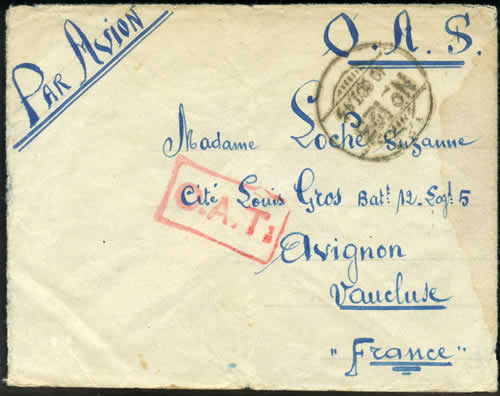 Par Avion
O. A. S.
Madame Loche Suzanne
Cité Louis Gros Batt 12-Logt 5
O.A.T.
Avignon
Vaucluse
"France"